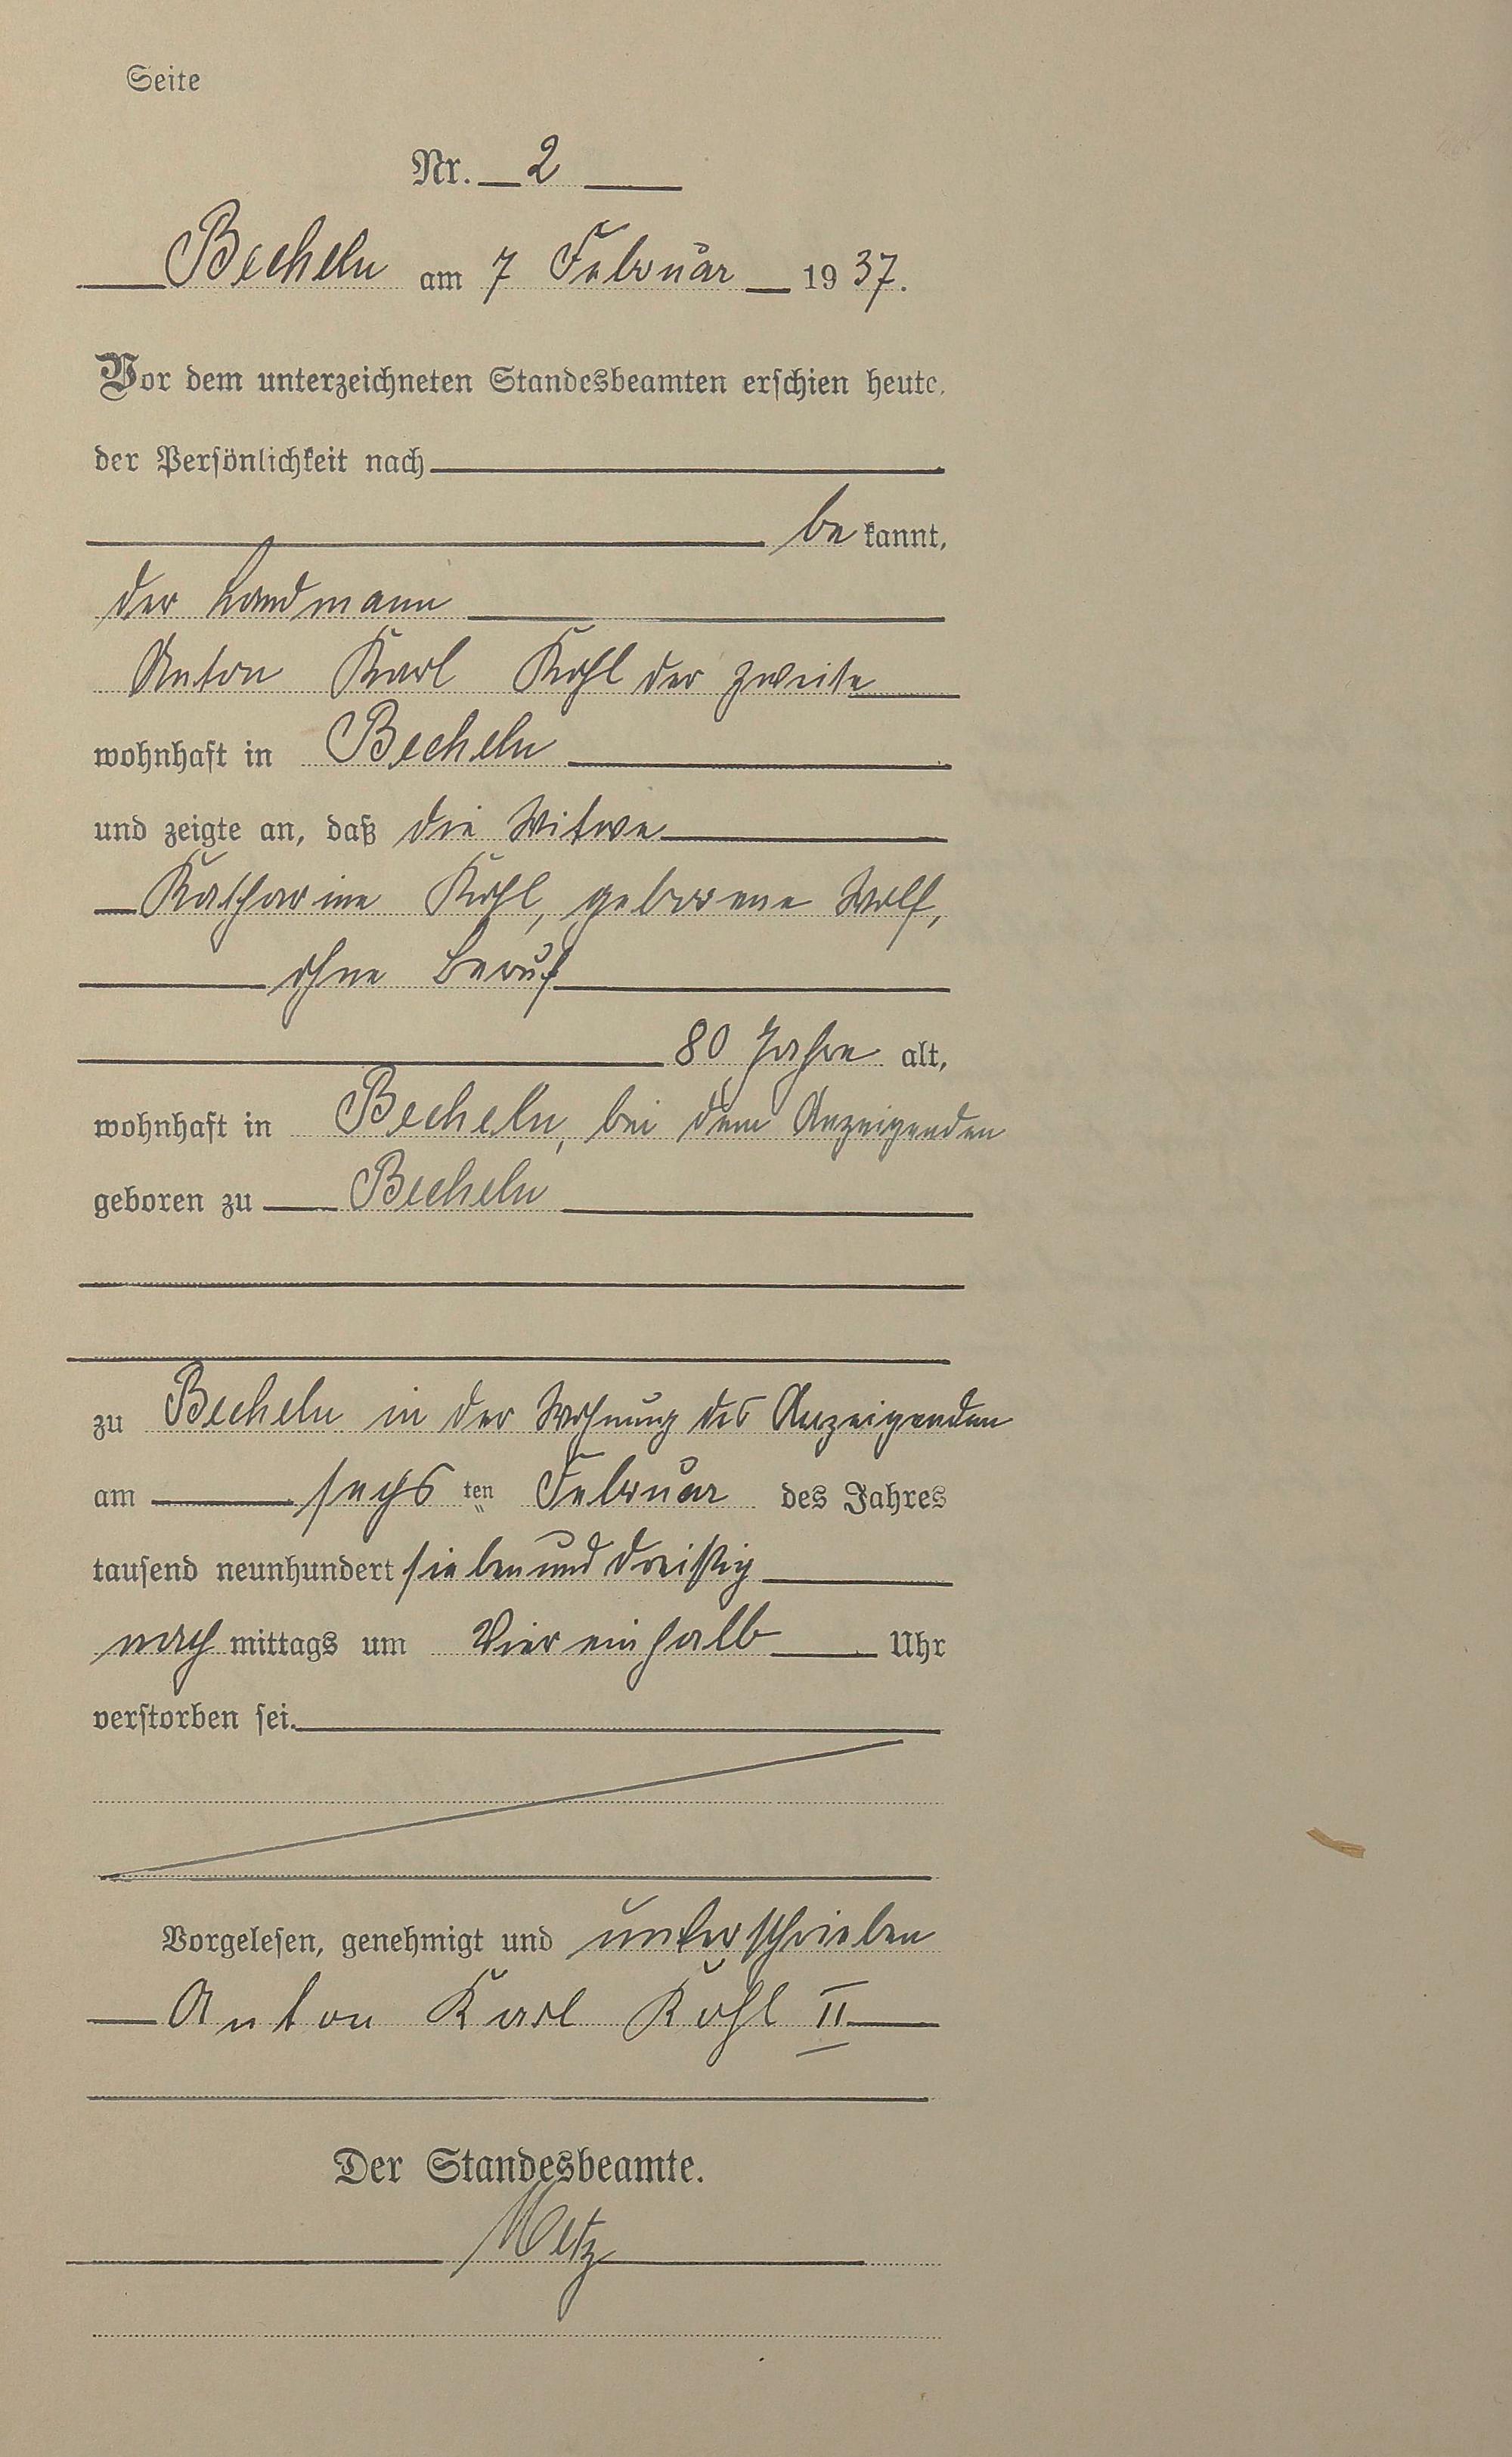 Seite
Nr. 2
Becheln am 7 Februar 1937.
Vor dem unterzeichneten Standesbeamten erschien heute,
der Persönlichkeit nach
bekannt,
der Landmann
Anton Karl Kohl der zweite
wohnhaft in Becheln
und zeigte an, daß die Witwe
Katharine Kohl, geborene Wolf,
ohne Beruf
80 Jahre alt,
wohnhaft in Becheln, bei dem Anzeigenden
geboren zu Becheln
zu Becheln in der Wohnung des Anzeigenden
am sechsten Februar des Jahres
tausend neunhundert sieben und dreißig
nachmittags um Vier einhalb Uhr
verstorben sei.
Vorgelesen, genehmigt und unterschrieben
Anton Karl Kohl II
Der Standesbeamte.
Metz